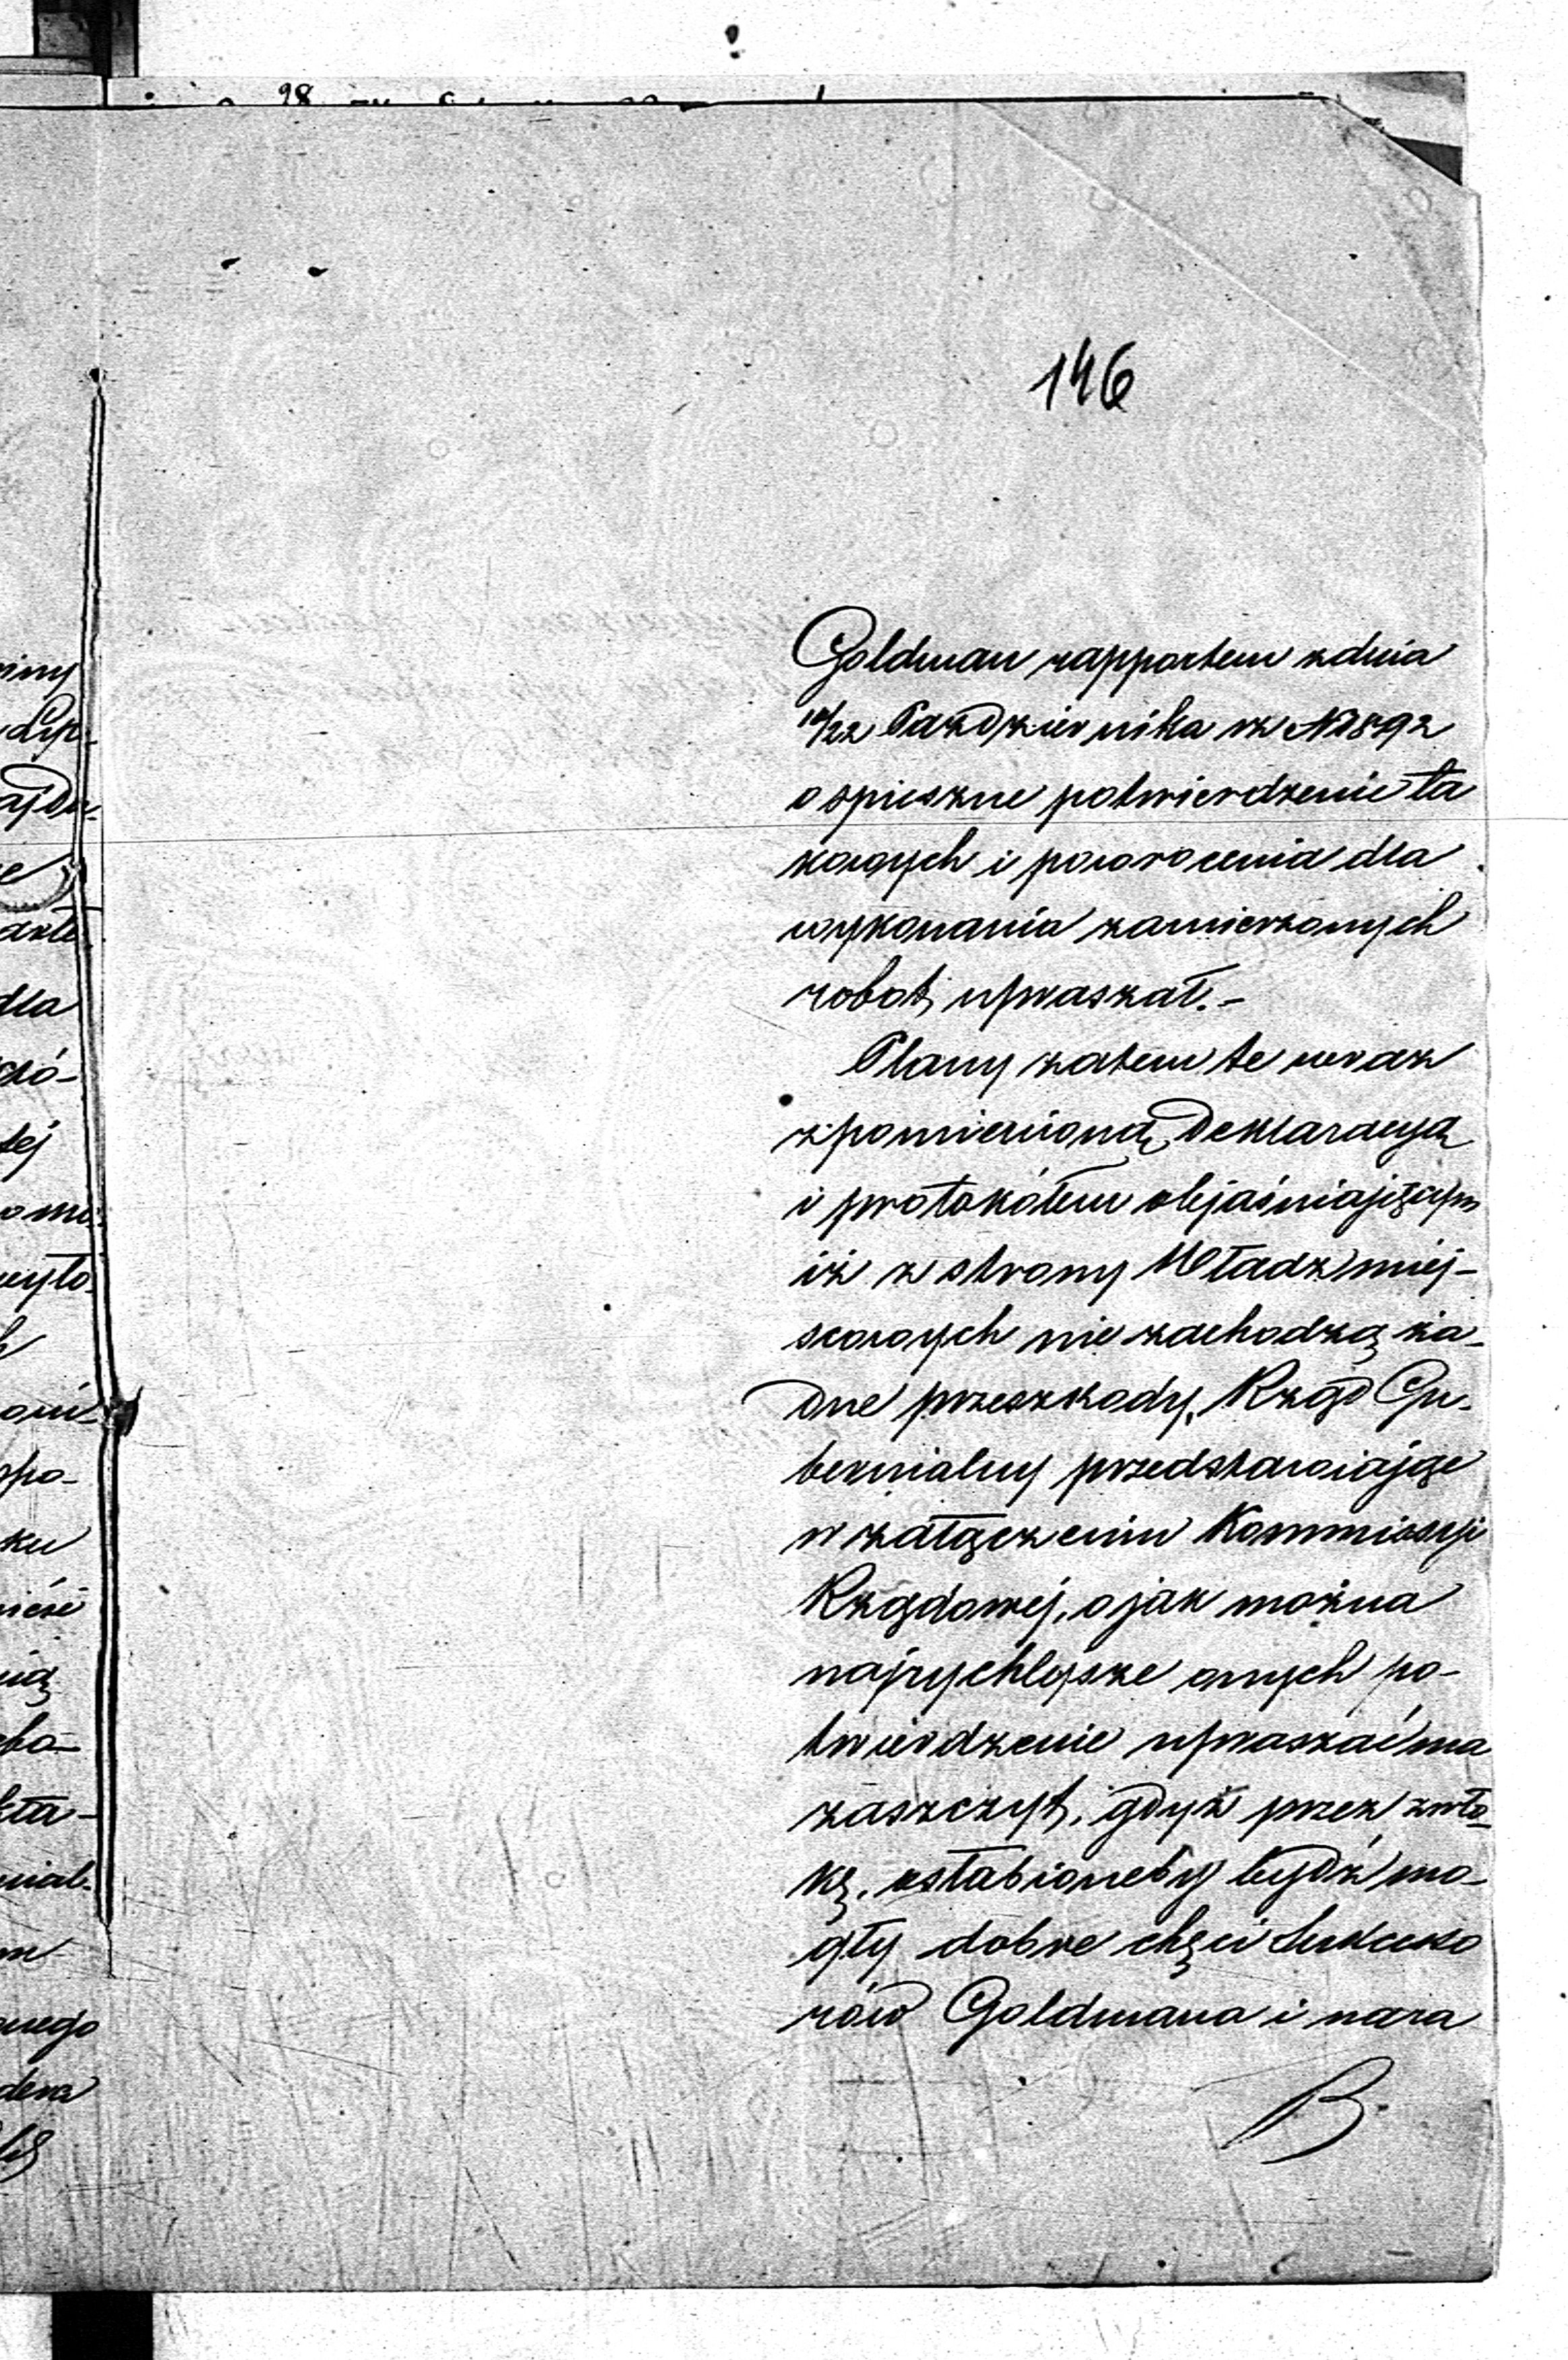 146
Goldman rapportem z dnia
10/22 Październīka rz N 1892
o spieszne potwierdzenie ta
kowych i powrocenia dla
wykonania zamierzonych
robot, upraszał.-
Plany zatem te wraz
z pomienioną Deklaracyą
i protokółem objaśniającym
iż z strony Władz miej-
scowych nie zachodzą ża-
dne przeszkody, Rząd Gu-
bernialny przedstawiając
w załączeniu Kommissyi
Rządowej, o jak można
najrychlejsze onych po-
twierdzenie upraszać ma
zaszczyt, gdyż przez zwło-
kę, osłabioneby bydź mo-
gły dobre chęci Sukcesso
rów Goldmana i nara
B.